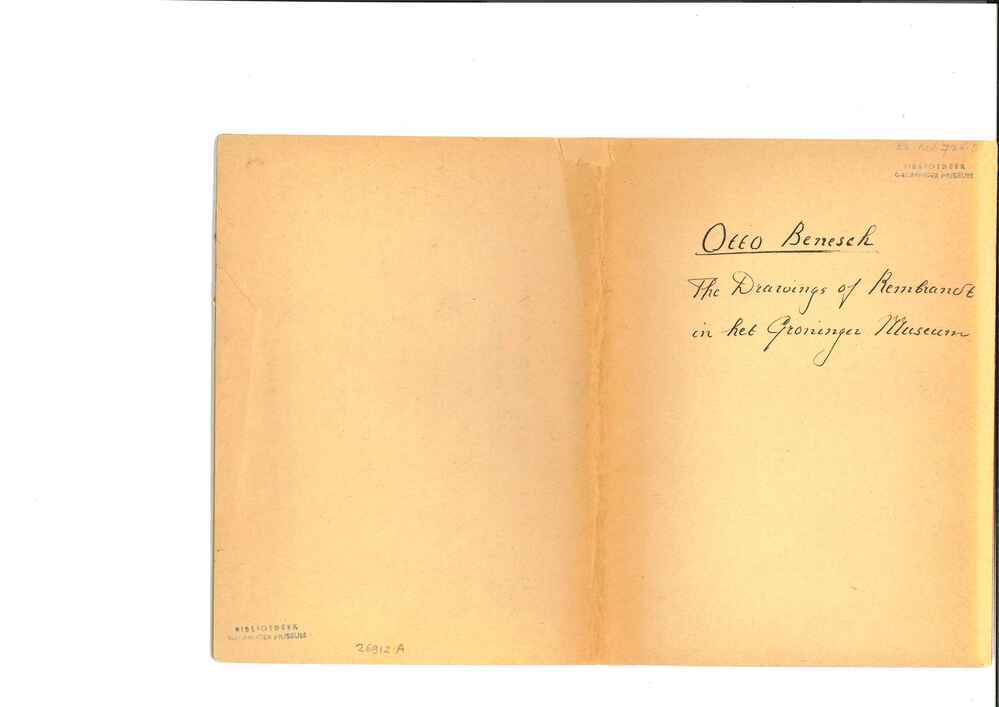 BIBLIOTHEEK
GRONINGER MUSEUM
Otto Benesch
The Drawings of Rembrandt
in het Groninger Museum
BIBLIOTHEEK
GRONINGER MUSEUM
26912·A